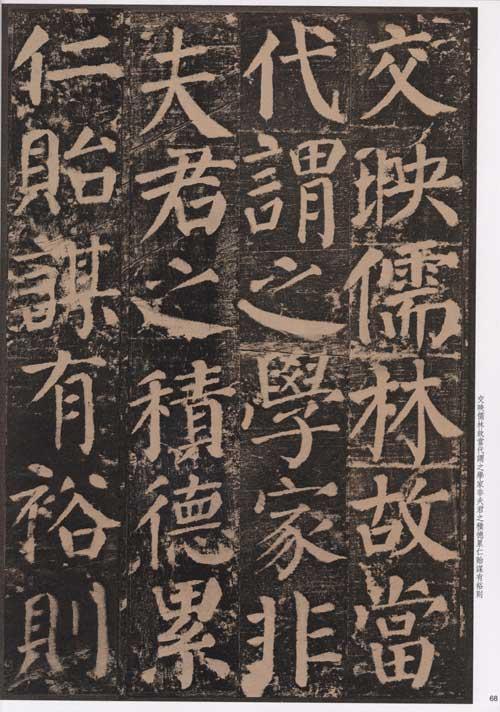 交映儒林故當
代謂之學家非
夫君之積德累
仁貽謀有裕則
交映儒林故當代謂之學家非夫君之積德累仁貽謀有裕則
68